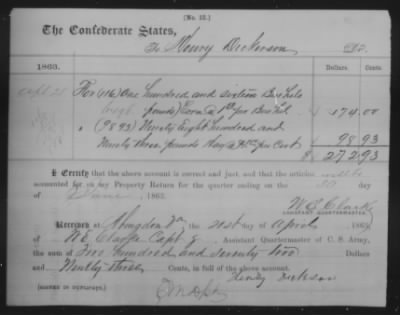 [No. 12.]
The Confederate States,
To Henry Dickerson Dr.
Dollars. Cents.
1863.
For (116) One hundred and sixteen Bushels
pounds) Corn @ per Bushel $ 174.00
" (9893) Ninety Eight hundred and
Ninety three pounds Hay @ per Cwt 98.93
$ 272.93
I Certify that the above account is correct and just, and that the articles will be
accounted for on my Property Return for the quarter ending on the 30 day
of June, 1863.
W E Clarke
Assistant Quartermaster.
Received at Abingdon Va the 21st of April 1863
of W E Clarke Capt & Assistant Quartermaster of C. S. Army,
the sum of Two hundred and seventy two Dollars
and Ninety three Cents, in full of the above account.
Henry Dickerson
[Signed in duplicate.]